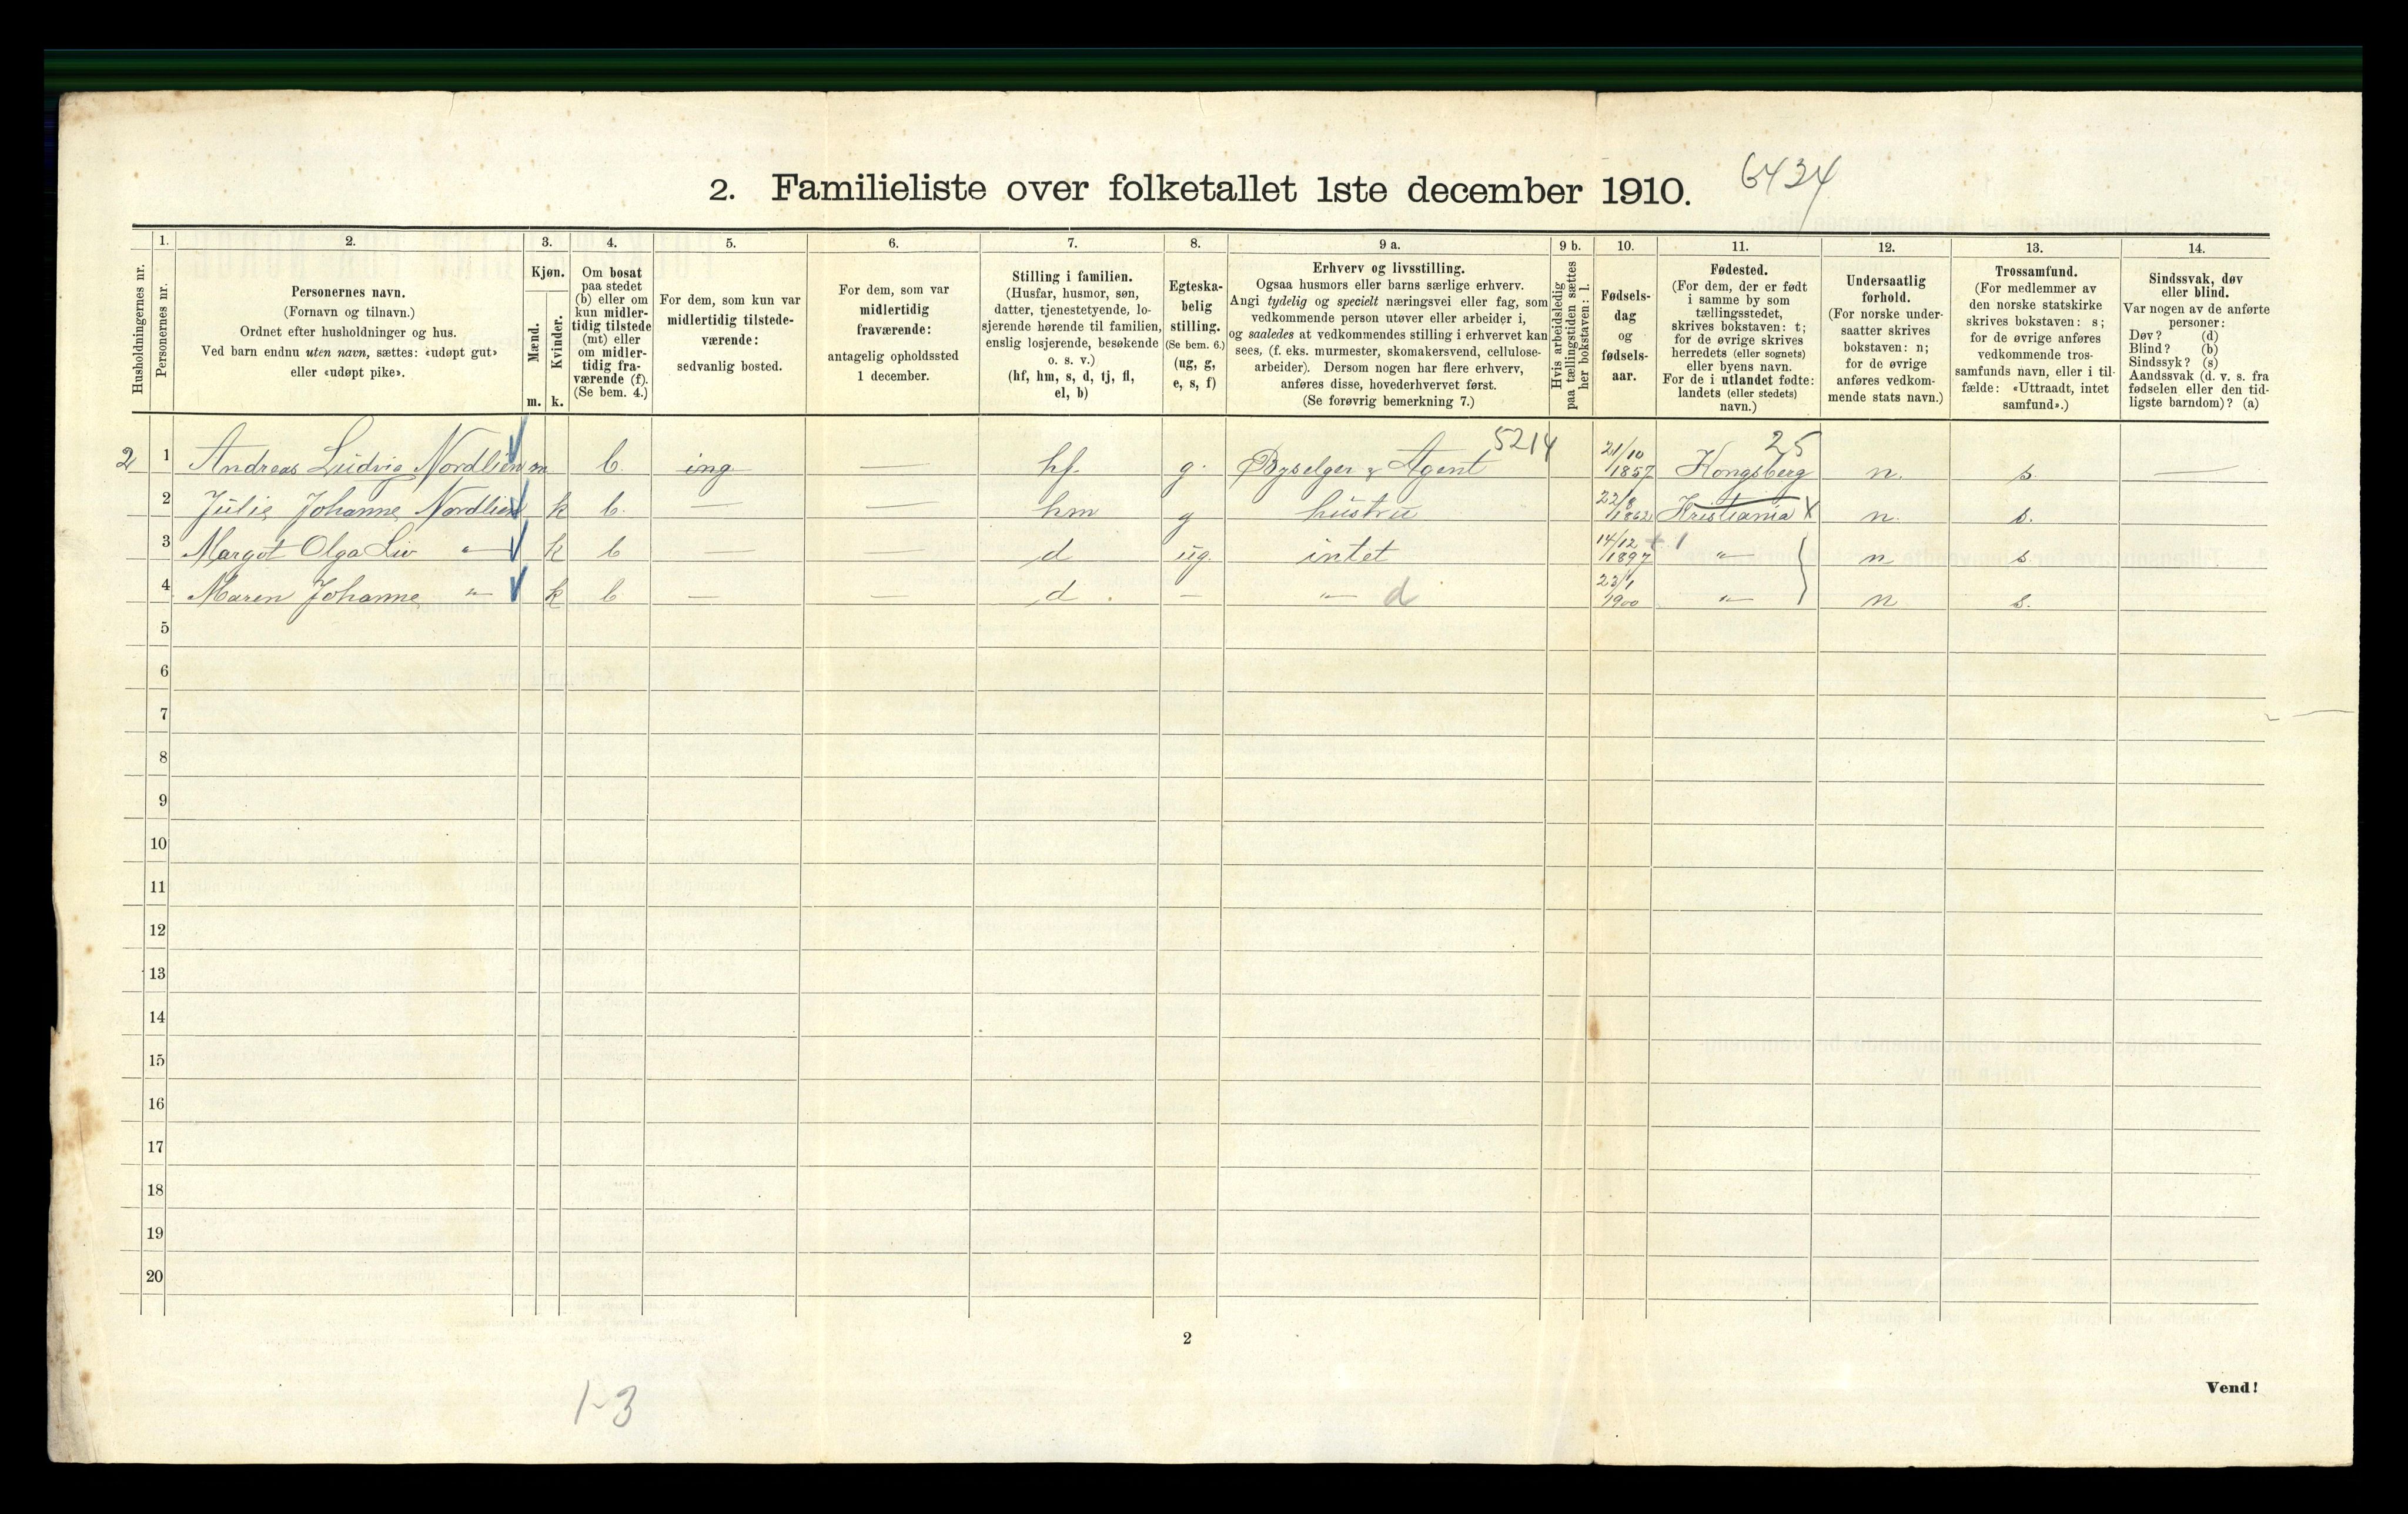 6434
2. Familieliste over folketallet 1ste december 1910.
1. 2. 3. 4. 5. 6. 7. 8. 9 a. 9 b. 10. 11. 12. 13. 14.
Husholdningernes nr.
Personernes nr.
Personernes navn.
(Fornavn og tilnavn.)
Ordnet efter husholdninger og hus.
Ved barn endnu uten navn, sættes: «udøpt gut»
eller «udøpt pike».
Kjøn.
Mænd.
Kvinder.
m. k.
Om bosat
paa stedet
(b) eller om
kun midler-
tidig tilstede
(mt) eller
om midler-
tidig fra-
værende (f).
(Se bem. 4.)
For dem, som kun var
midlertidig tilstede-
værende:
sedvanlig bosted.
For dem, som var
midlertidig
fraværende:
antagelig opholdssted
1 december.
Stilling i familien.
(Husfar, husmor, søn,
datter, tjenestetyende, lo-
sjerende hørende til familien,
enslig losjerende, besøkende
o. s. v.)
(hf, hm, s, d, tj, fl,
el, b)
Egteska-
belig
stilling.
(Se bem. 6.)
(ug, g,
e, s, f)
Erhverv og livsstilling.
Ogsaa husmors eller barns særlige erhverv.
Angi tydelig og specielt næringsvei eller fag, som
vedkommende person utøver eller arbeider i,
og saaledes at vedkommendes stilling i erhvervet kan
sees, (f. eks. murmester, skomakersvend, cellulose-
arbeider). Dersom nogen har flere erhverv,
anføres disse, hovederhvervet først.
(Se forøvrig bemerkning 7.)
Hvis arbeidsledig
paa tællingstiden sættes
her bokstaven: l.
Fødsels-
dag
og
fødsels-
aar.
Fødested.
(For dem, der er født
i samme by som
tællingsstedet,
skrives bokstaven: t;
for de øvrige skrives
herredets (eller sognets)
eller byens navn.
For de i utlandet fødte:
landets (eller stedets)
navn.)
Undersaatlig
forhold.
(For norske under-
saatter skrives
bokstaven: n;
for de øvrige
anføres vedkom-
mende stats navn.)
Trossamfund.
(For medlemmer av
den norske statskirke
skrives bokstaven: s;
for de øvrige anføres
vedkommende tros-
samfunds navn, eller i til-
fælde: «Uttraadt, intet
samfund».)
Sindssvak, døv
eller blind.
Var nogen av de anførte
personer:
Døv? (d)
Blind? (b)
Sindssyk? (s)
Aandssvak (d. v. s. fra
fødselen eller den tid-
ligste barndom)? (a)
5214 25
2 1 Andreas Ludvig Nordlien m b. ing — hf. g. Byselger & Agent 21/10 1857 Kongsberg n. s. —
2 Julie Johanne Nordlien k b. — — hm g hustru 22/8 1862 Kristiania X n. s.
3 Margot Olga Liv " k b — — d ug. intet 14/12 1897 + 1 " n s
4 Maren Johanne " k b — — d. — " d 23/1 1900 " n s.
5
6
7
8
9
10
11
12
13
14
15
16
17
18
19
20
2
Vend!
1-3